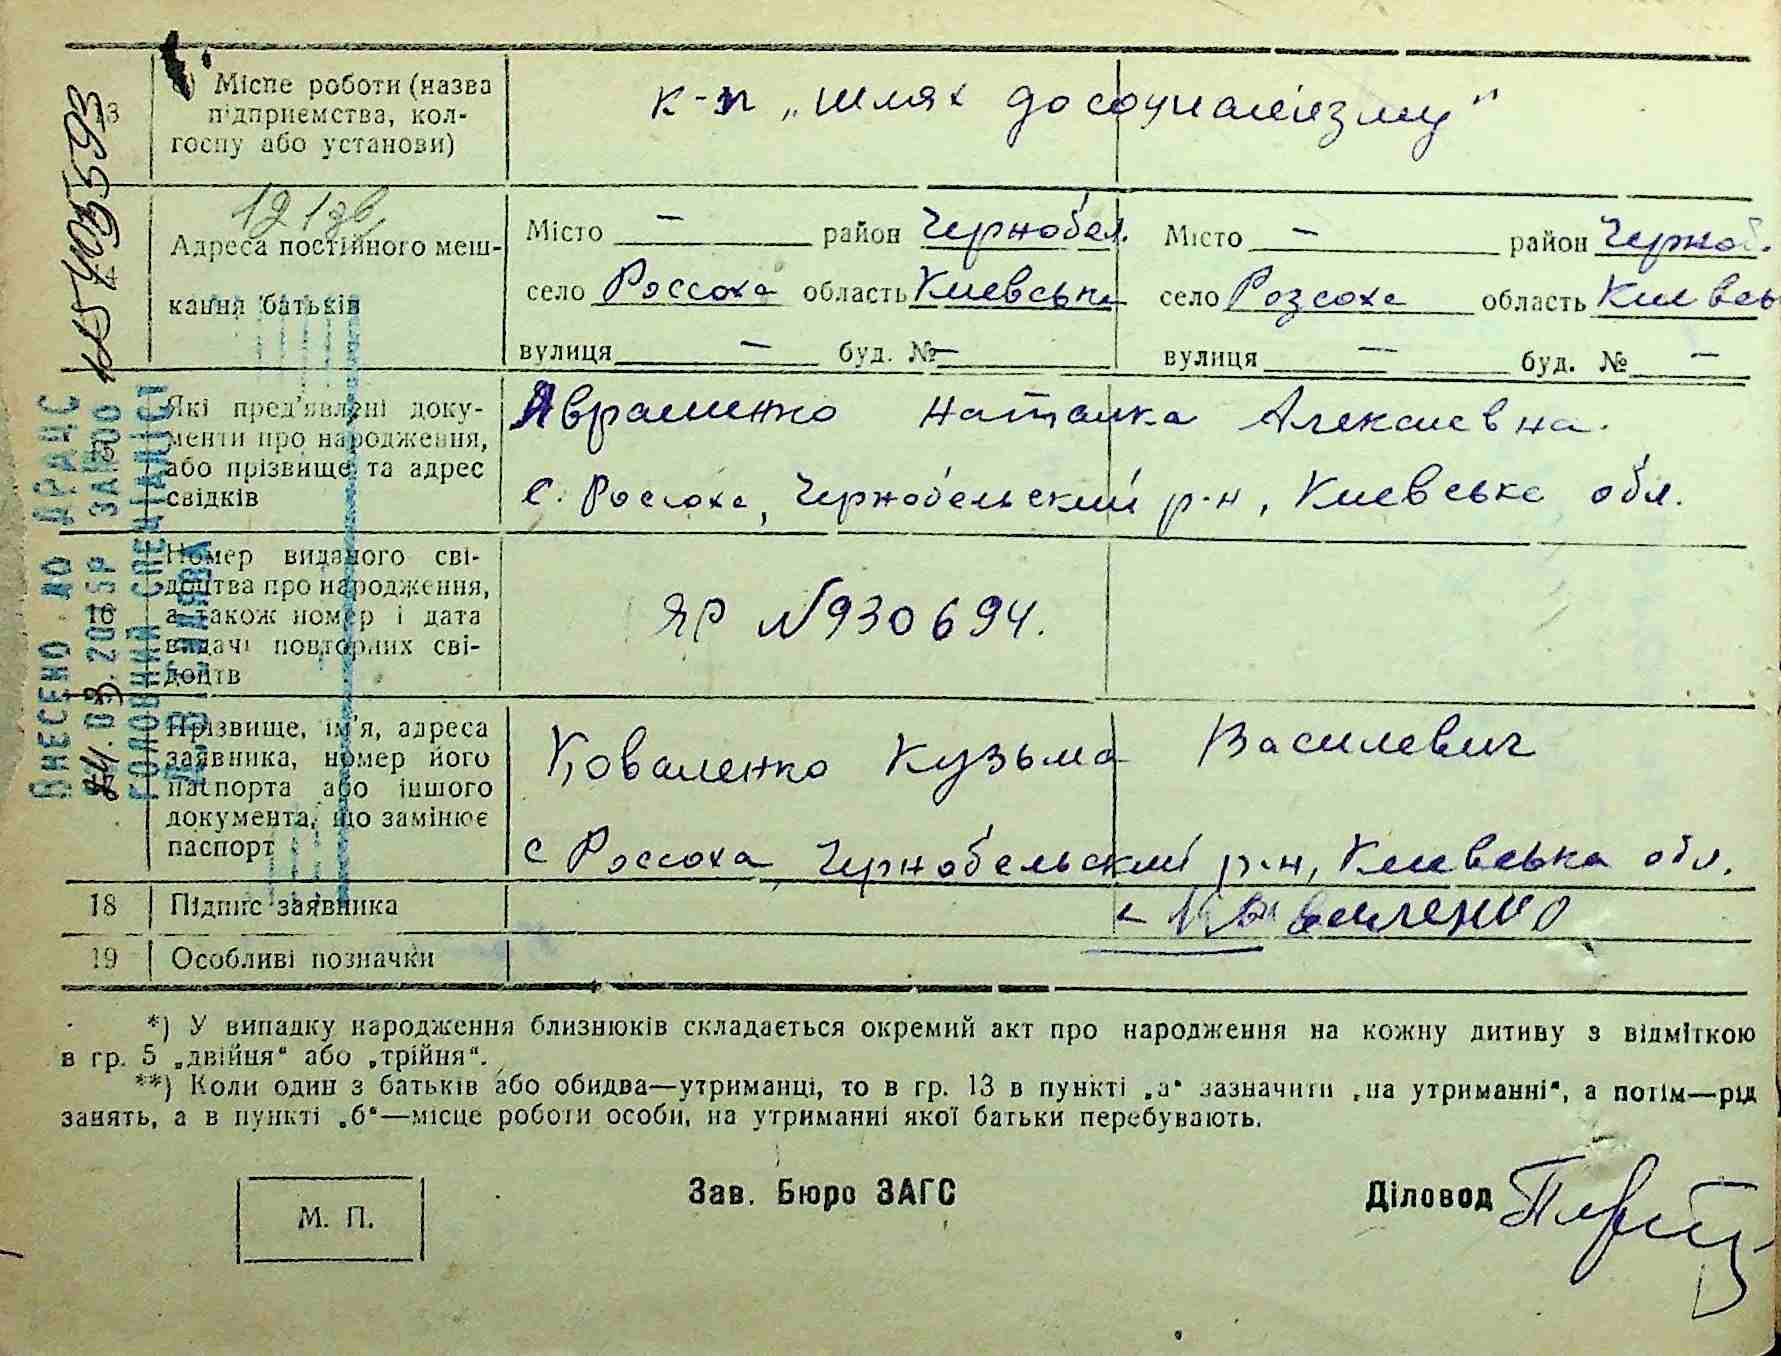 13 б) Місце роботи (назва підприємства, колгоспу або установи)
к-п „шлях до социалиізму"
14 Адреса постійного мешкання батьків
Місто — район Чернобел.
село Россоха область Киевська
вулиця — буд. № —
Місто — район Черноб.
село Розсоха область Киевсь
вулиця — буд. № —
Які пред'явлені документи про народження, або прізвище та адрес свідків
Авраменко Наталка Алексиевна.
с. Россоха, Чернобельский р-н, Киевська обл.
16 Номер виданого свідоцтва про народження, а також номер і дата видачі повторних свідоцтв
ЯР №930694.
Прізвище, ім'я, адреса заявника, номер його паспорта або іншого документа, що замінює паспорт
Коваленко Кузьма Василевич
с Россоха, Чернобельский р-н, Киевська обл.
18 Підпис заявника
19 Особливі позначки
*) У випадку народження близнюків складається окремий акт про народження на кожну дитину з відміткою
в гр. 5 „двійня" або „трійня".
**) Коли один з батьків або обидва—утриманці, то в гр. 13 в пункті „а" зазначити „на утриманні", а потім—рід
занять, а в пункті „б"—місце роботи особи, на утриманні якої батьки перебувають.
М. П.
Зав. Бюро ЗАГС
Діловод
ВНЕСЕНО ДО ДРАЦС
ГОЛОВНИЙ СПЕЦІАЛІСТ